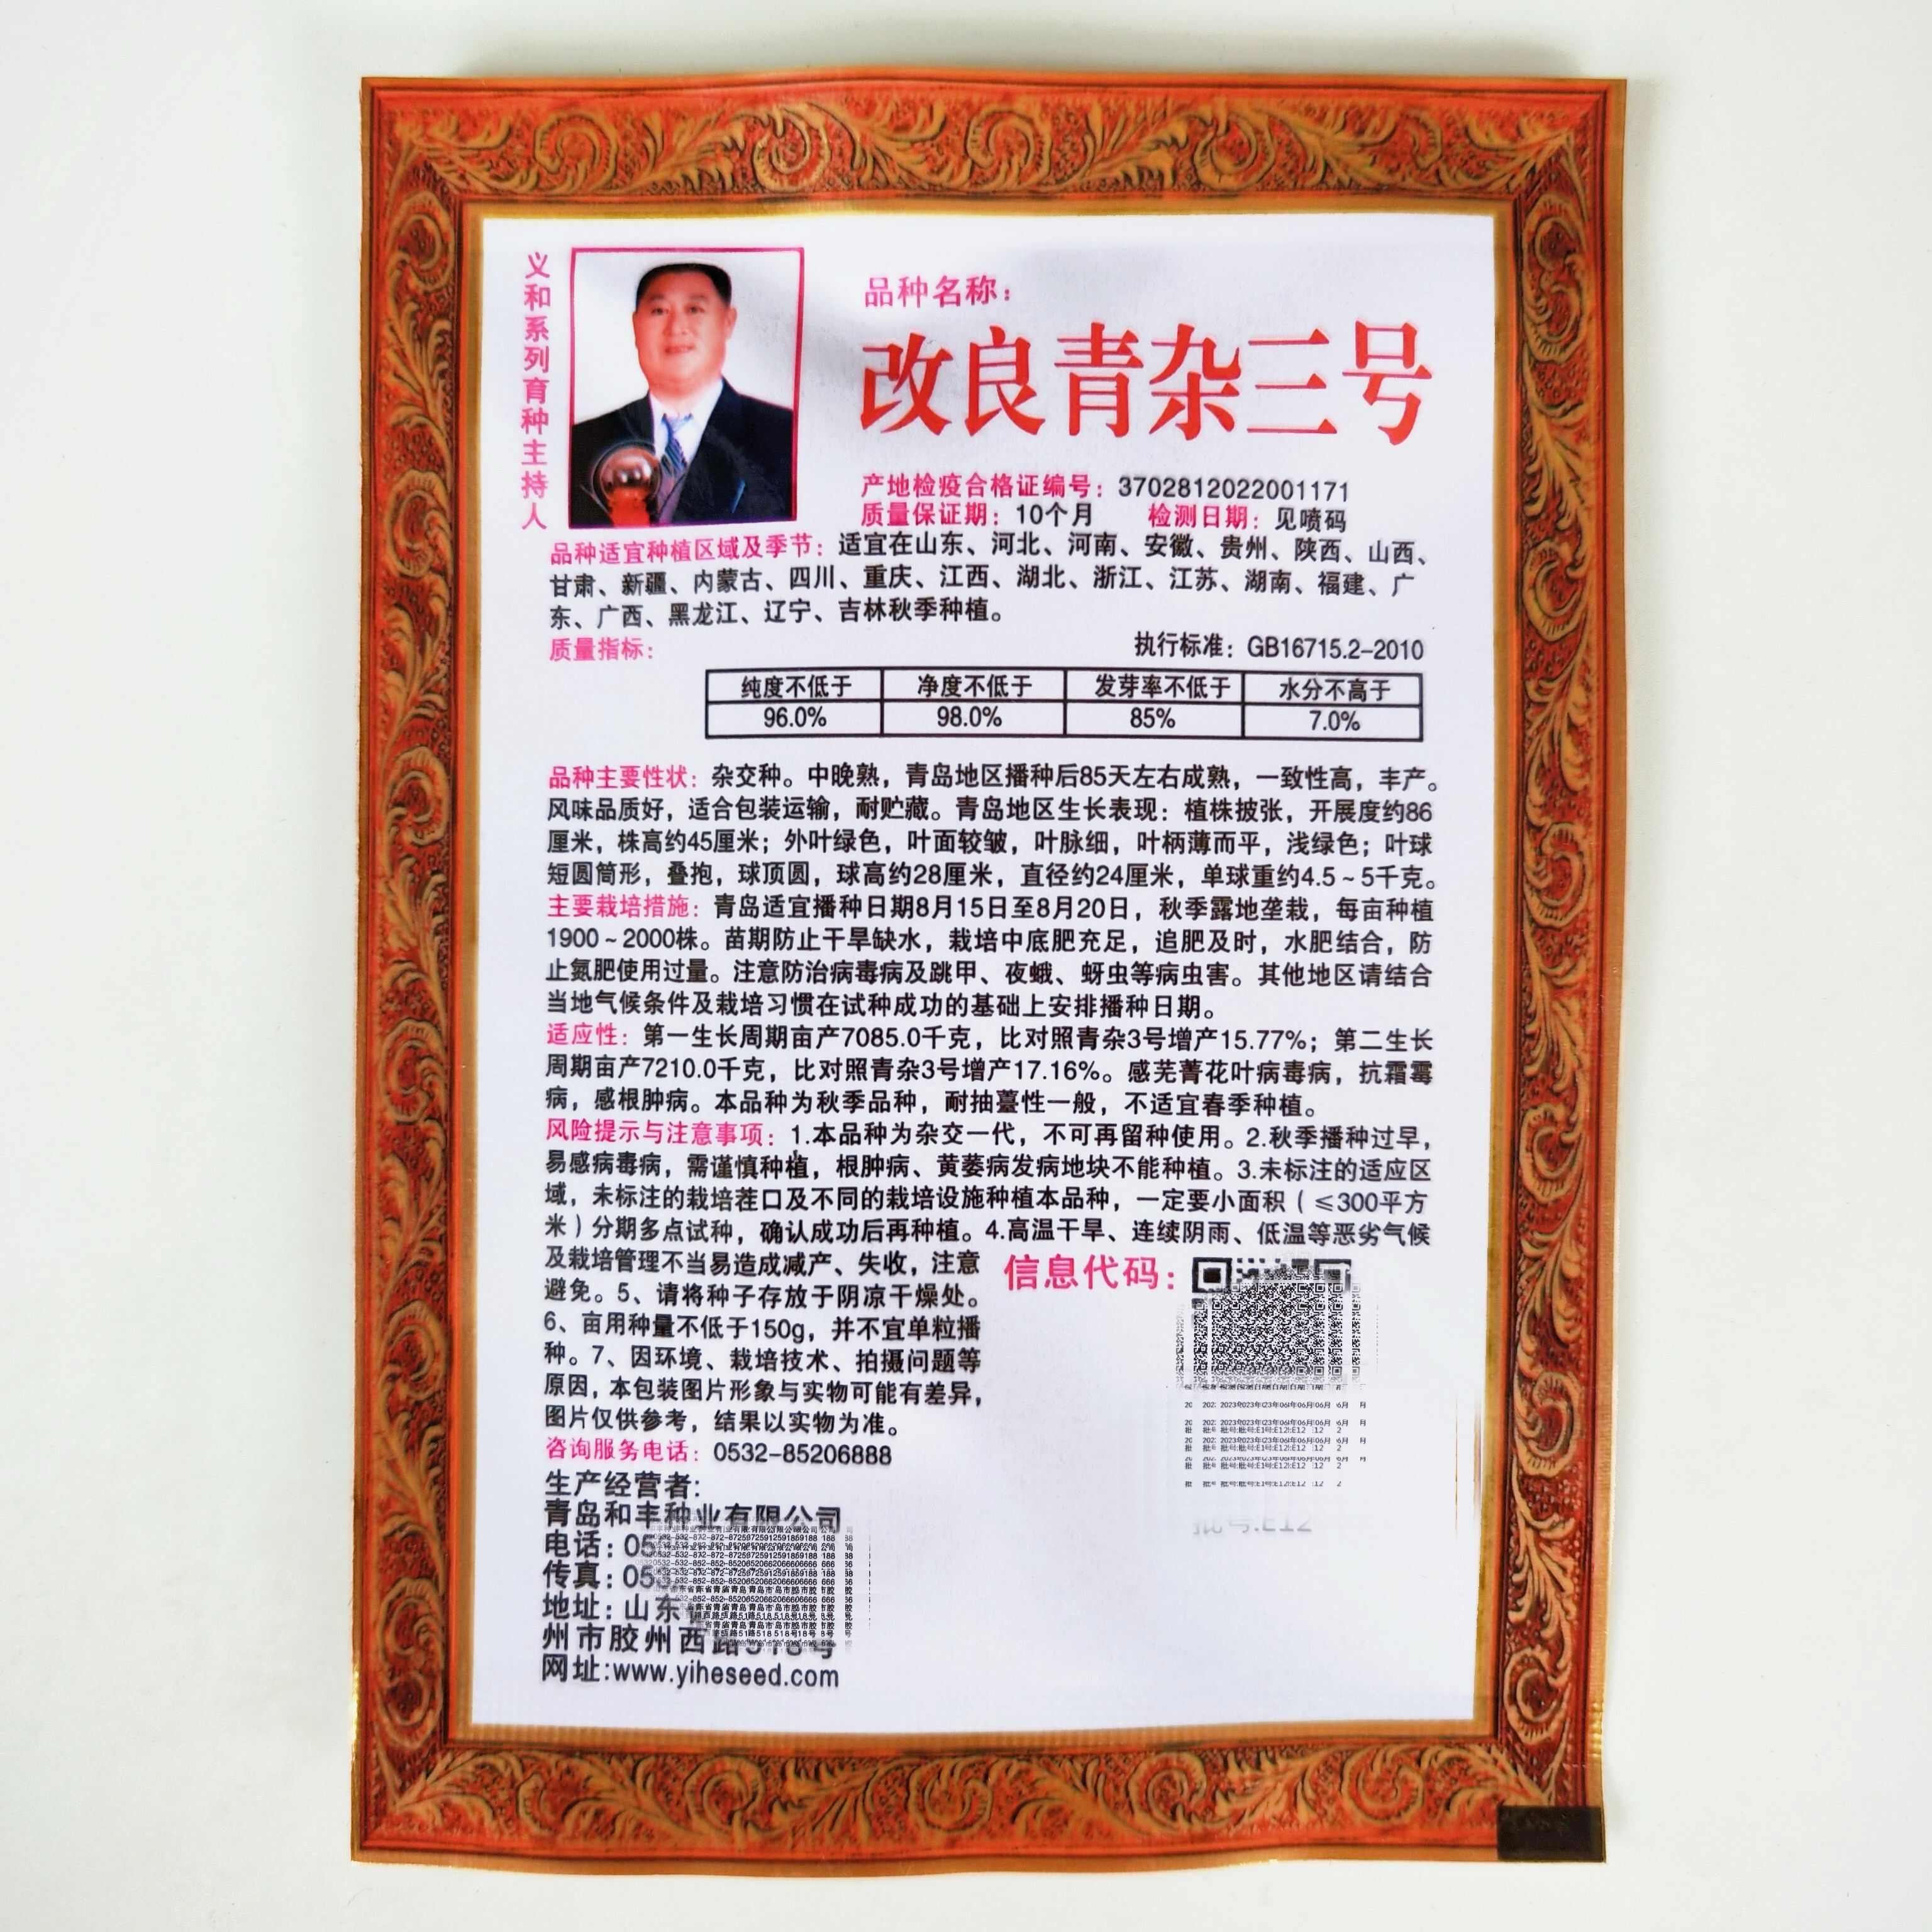 义和系列育种主持人
品种名称：
改良青杂三号
产地检疫合格证编号：3702812022001171
质量保证期：10个月 检测日期：见喷码
品种适宜种植区域及季节：适宜在山东、河北、河南、安徽、贵州、陕西、山西、
甘肃、新疆、内蒙古、四川、重庆、江西、湖北、浙江、江苏、湖南、福建、广
东、广西、黑龙江、辽宁、吉林秋季种植。
质量指标： 执行标准：GB16715.2-2010
纯度不低于 净度不低于 发芽率不低于 水分不高于
96.0% 98.0% 85% 7.0%
品种主要性状：杂交种。中晚熟，青岛地区播种后85天左右成熟，一致性高，丰产。
风味品质好，适合包装运输，耐贮藏。青岛地区生长表现：植株披张，开展度约86
厘米，株高约45厘米；外叶绿色，叶面较皱，叶脉细，叶柄薄而平，浅绿色；叶球
短圆筒形，叠抱，球顶圆，球高约28厘米，直径约24厘米，单球重约4.5～5千克。
主要栽培措施：青岛适宜播种日期8月15日至8月20日，秋季露地垄栽，每亩种植
1900～2000株。苗期防止干旱缺水，栽培中底肥充足，追肥及时，水肥结合，防
止氮肥使用过量。注意防治病毒病及跳甲、夜蛾、蚜虫等病虫害。其他地区请结合
当地气候条件及栽培习惯在试种成功的基础上安排播种日期。
适应性：第一生长周期亩产7085.0千克，比对照青杂3号增产15.77%；第二生长
周期亩产7210.0千克，比对照青杂3号增产17.16%。感芜菁花叶病毒病，抗霜霉
病，感根肿病。本品种为秋季品种，耐抽薹性一般，不适宜春季种植。
风险提示与注意事项：1.本品种为杂交一代，不可再留种使用。2.秋季播种过早，
易感病毒病，需谨慎种植，根肿病、黄萎病发病地块不能种植。3.未标注的适应区
域，未标注的栽培茬口及不同的栽培设施种植本品种，一定要小面积（≤300平方
米）分期多点试种，确认成功后再种植。4.高温干旱、连续阴雨、低温等恶劣气候
及栽培管理不当易造成减产、失收，注意
避免。5、请将种子存放于阴凉干燥处。
6、亩用种量不低于150g，并不宜单粒播
种。7、因环境、栽培技术、拍摄问题等
原因，本包装图片形象与实物可能有差异，
图片仅供参考，结果以实物为准。
信息代码：
批号:E12
咨询服务电话：0532-85206888
生产经营者:
青岛和丰种业有限公司
电话：05
传真：05
地址：山东
州市胶州西路518号
网址:www.yiheseed.com